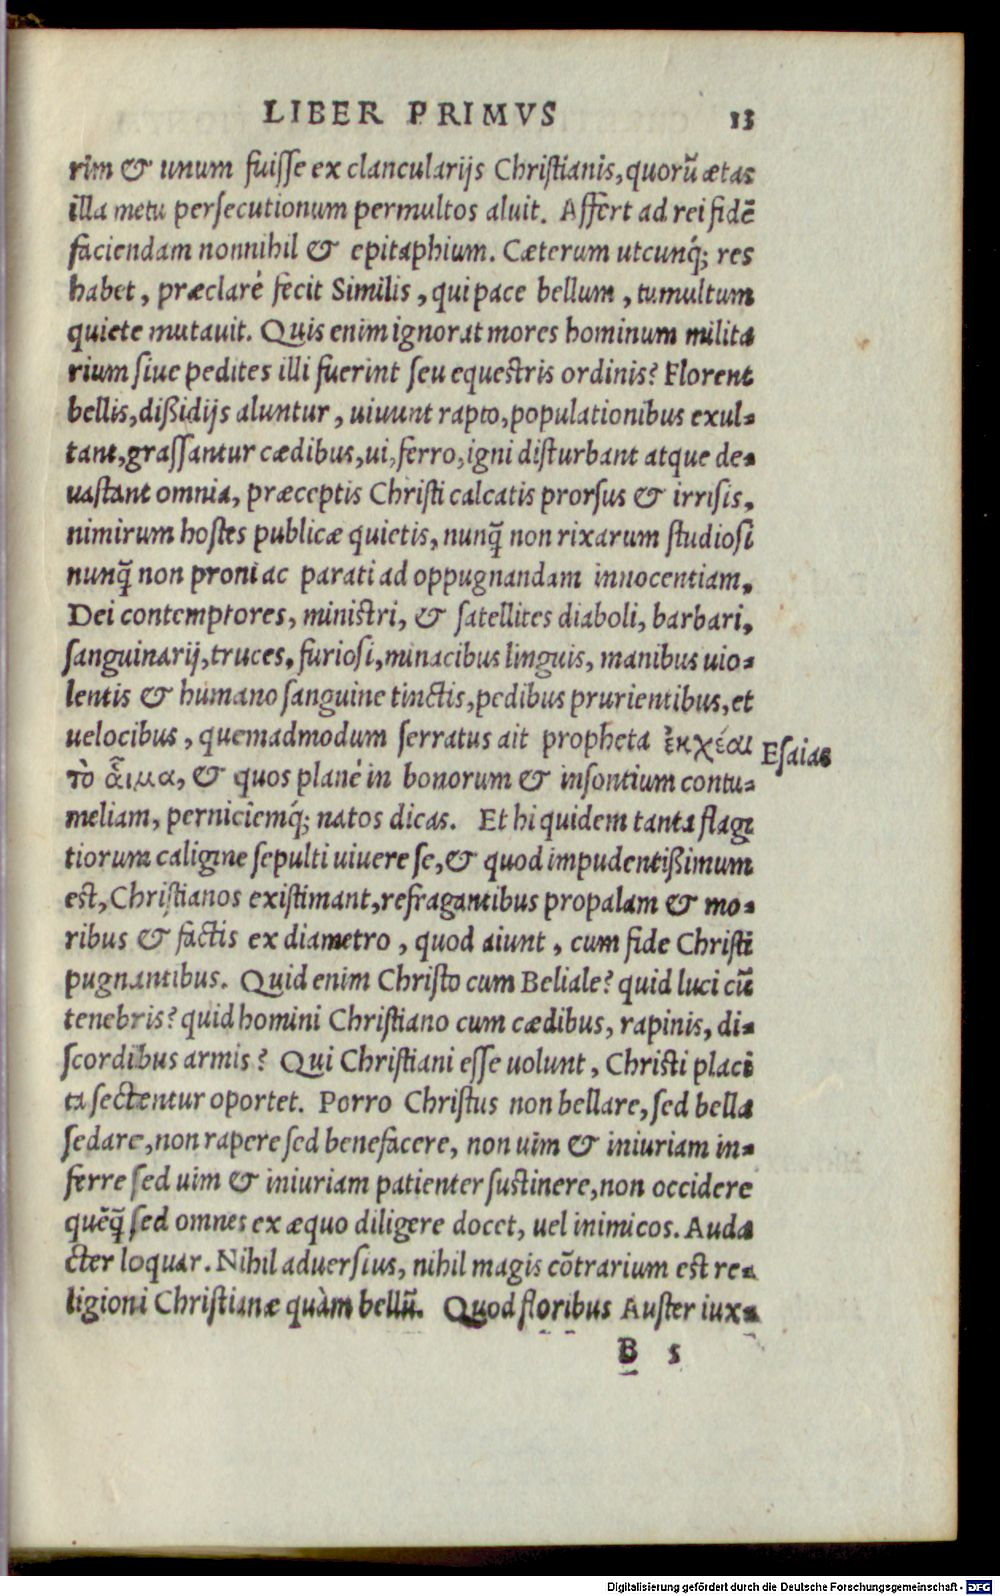 LIBER PRIMVS 13
rim & unum fuiſſe ex clanculariis Chriſtianis, quorū ætas
illa metu perſecutionum permultos aluit. Affert ad rei fidē
faciendam nonnihil & epitaphium. Cæterum utcunq́; res
habet, præclaré fecit Similis, qui pace bellum, tumultum
quiete mutauit. Quis enim ignorat mores hominum milita
rium ſiue pedites illi fuerint ſeu equeſtris ordinis? Florent
bellis, dißidijs aluntur, uiuunt rapto, populationibus exul-
tant, graſſantur cædibus, ui, ferro, igni diſturbant atque de-
uaſtant omnia, præceptis Chriſti calcatis prorſus & irriſis,
nimirum hoſtes publicæ quietis, nunq̃ non rixarum ſtudioſi
nunq̃ non proni ac parati ad oppugnandam innocentiam,
Dei contemptores, miniſtri, & ſatellites diaboli, barbari,
ſanguinarij, truces, furioſi, minacibus linguis, manibus uio-
lentis & humano ſanguine tinctis, pedibus prurientibus, et
uelocibus, quemadmodum ſerratus ait propheta ἐκχέαι
Eſaias
τὸ ἆιμα, & quos planè in bonorum & inſontium contu-
meliam, perniciemq́; natos dicas. Et hi quidem tanta flagi
tiorum caligine ſepulti uiuere ſe, & quod impudentißimum
eſt, Chriſtianos exiſtimant, refragantibus propalam & mo-
ribus & factis ex diametro, quod aiunt, cum fide Chriſti
pugnantibus. Quid enim Chriſto cum Beliale? quid luci cū
tenebris? quid homini Chriſtiano cum cædibus, rapinis, di-
ſcordibus armis? Qui Chriſtiani eſſe uolunt, Chriſti placi
ta ſectentur oportet. Porro Chriſtus non bellare, ſed bella
ſedare, non rapere ſed benefacere, non uim & iniuriam in-
ferre ſed uim & iniuriam patienter ſuſtinere, non occidere
quēq̃ ſed omnes ex æquo diligere docet, uel inimicos. Auda
cter loquar. Nihil aduerſius, nihil magis cōtrarium eſt re-
ligioni Chriſtianæ quàm bellū. Quod floribus Auſter iux-
B 5
Digitalisierung gefördert durch die Deutsche Forschungsgemeinschaft - DFG